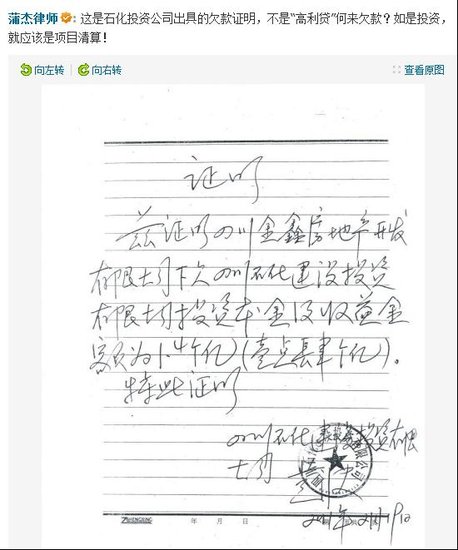 蒲杰律师：这是石化投资公司出具的欠款证明，不是“高利贷”何来欠款？如是投资，
就应该是项目清算！
向左转 向右转 查看原图
证明
兹证明四川金鑫房地产开发
有限公司下欠四川石化建设投资
有限公司投资本金及收益金
额为1.4个亿(壹点肆个亿)。
特此证明
四川石化建设投资有限
公司
年 月 日